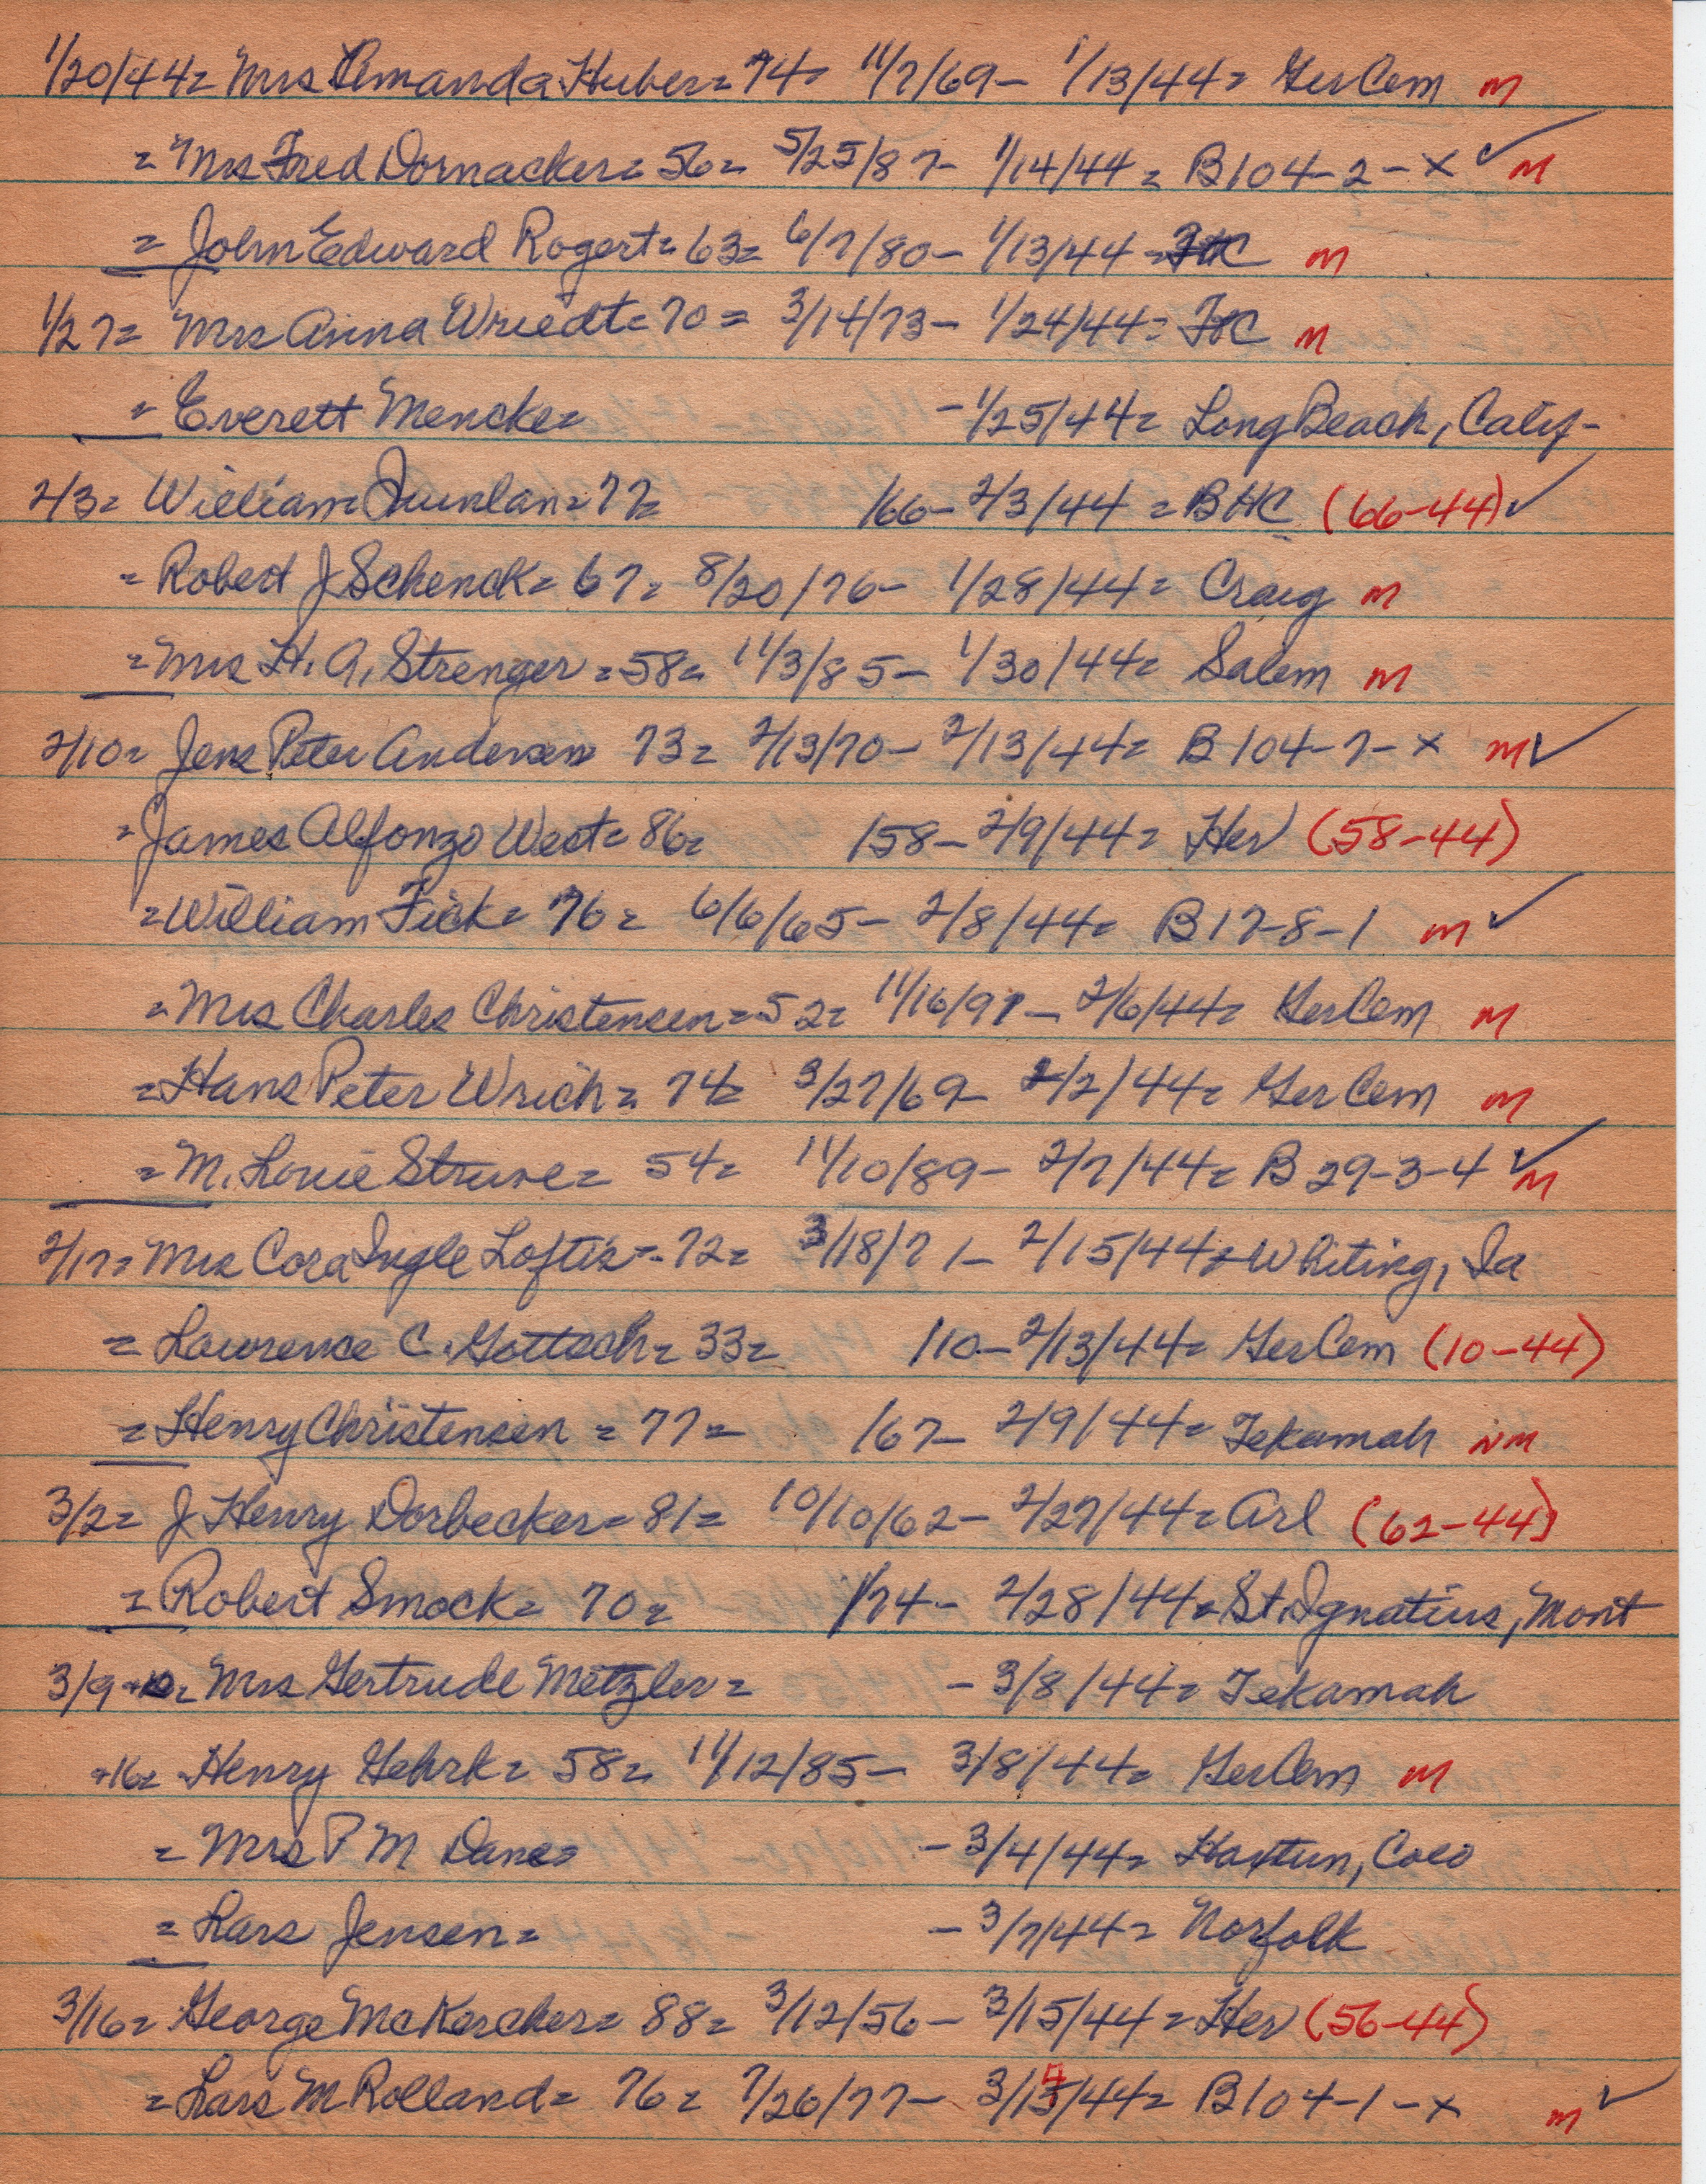 1/20/44= Mrs Amanda Huber= 74= 11/7/69- 1/13/44= Ger Cem M
= Mrs Fred Dornacker= 56= 5/25/87- 1/14/44= B104-2-X ✓ M
= John Edward Rogert= 63= 6/7/80- 1/13/44= M
1/27= Mrs Anna Wriedt= 70= 3/14/73- 1/24/44= M
= Everett Mencke= -1/25/44= Long Beach, Calif-
2/3= William Quinlan= 77= /66- 2/3/44= BHC (66-44) ✓
= Robert J Schenck= 67= 8/20/76- 1/28/44= Craig M
= Mrs H. A. Strenger= 58= 11/3/85- 1/30/44= Salem M
2/10= Jens Peter Andersen 73= 2/13/70- 2/13/44= B104-7-X M ✓
= James Alfonzo West= 86= /58- 2/9/44= Her (58-44)
= William Fick= 76= 6/6/65- 2/8/44= B17-8-1 M ✓
= Mrs Charles Christensen= 52= 11/16/91- 2/6/44= Ger Cem M
= Hans Peter Wrich= 74= 3/27/69- 2/2/44= Ger Cem M
= M. Louie Struve= 54= 11/10/89- 2/7/44= B29-3-4 ✓ M
2/17= Mrs Cora Ingle Loftis= 72= 3/18/71- 2/15/44= Whiting, Ia
= Lawrence C. Gottsch= 33= /10- 2/13/44= Ger Cem (10-44)
= Henry Christensen= 77= /67- 2/9/44= Tekamah NM
3/2= J Henry Dorbecker= 81= 10/10/62- 2/27/44= Arl (62-44)
= Robert Smock= 70= /74- 2/28/44= St. Ignatius, Mont
3/9 = Mrs Gertrude Metzler= -3/8/44= Tekamah
+16= Henry Gehrk= 58= 11/12/85- 3/8/44= Ger Cem M
= Mrs P M Dane= -3/4/44= Haxtun, Colo
= Lars Jensen= -3/7/44= Norfolk
3/16= George McKercher= 88= 3/12/56- 3/15/44= Her (56-44)
= Lars M Rolland= 76= 7/26/77- 3/14/44= B104-1-X M ✓